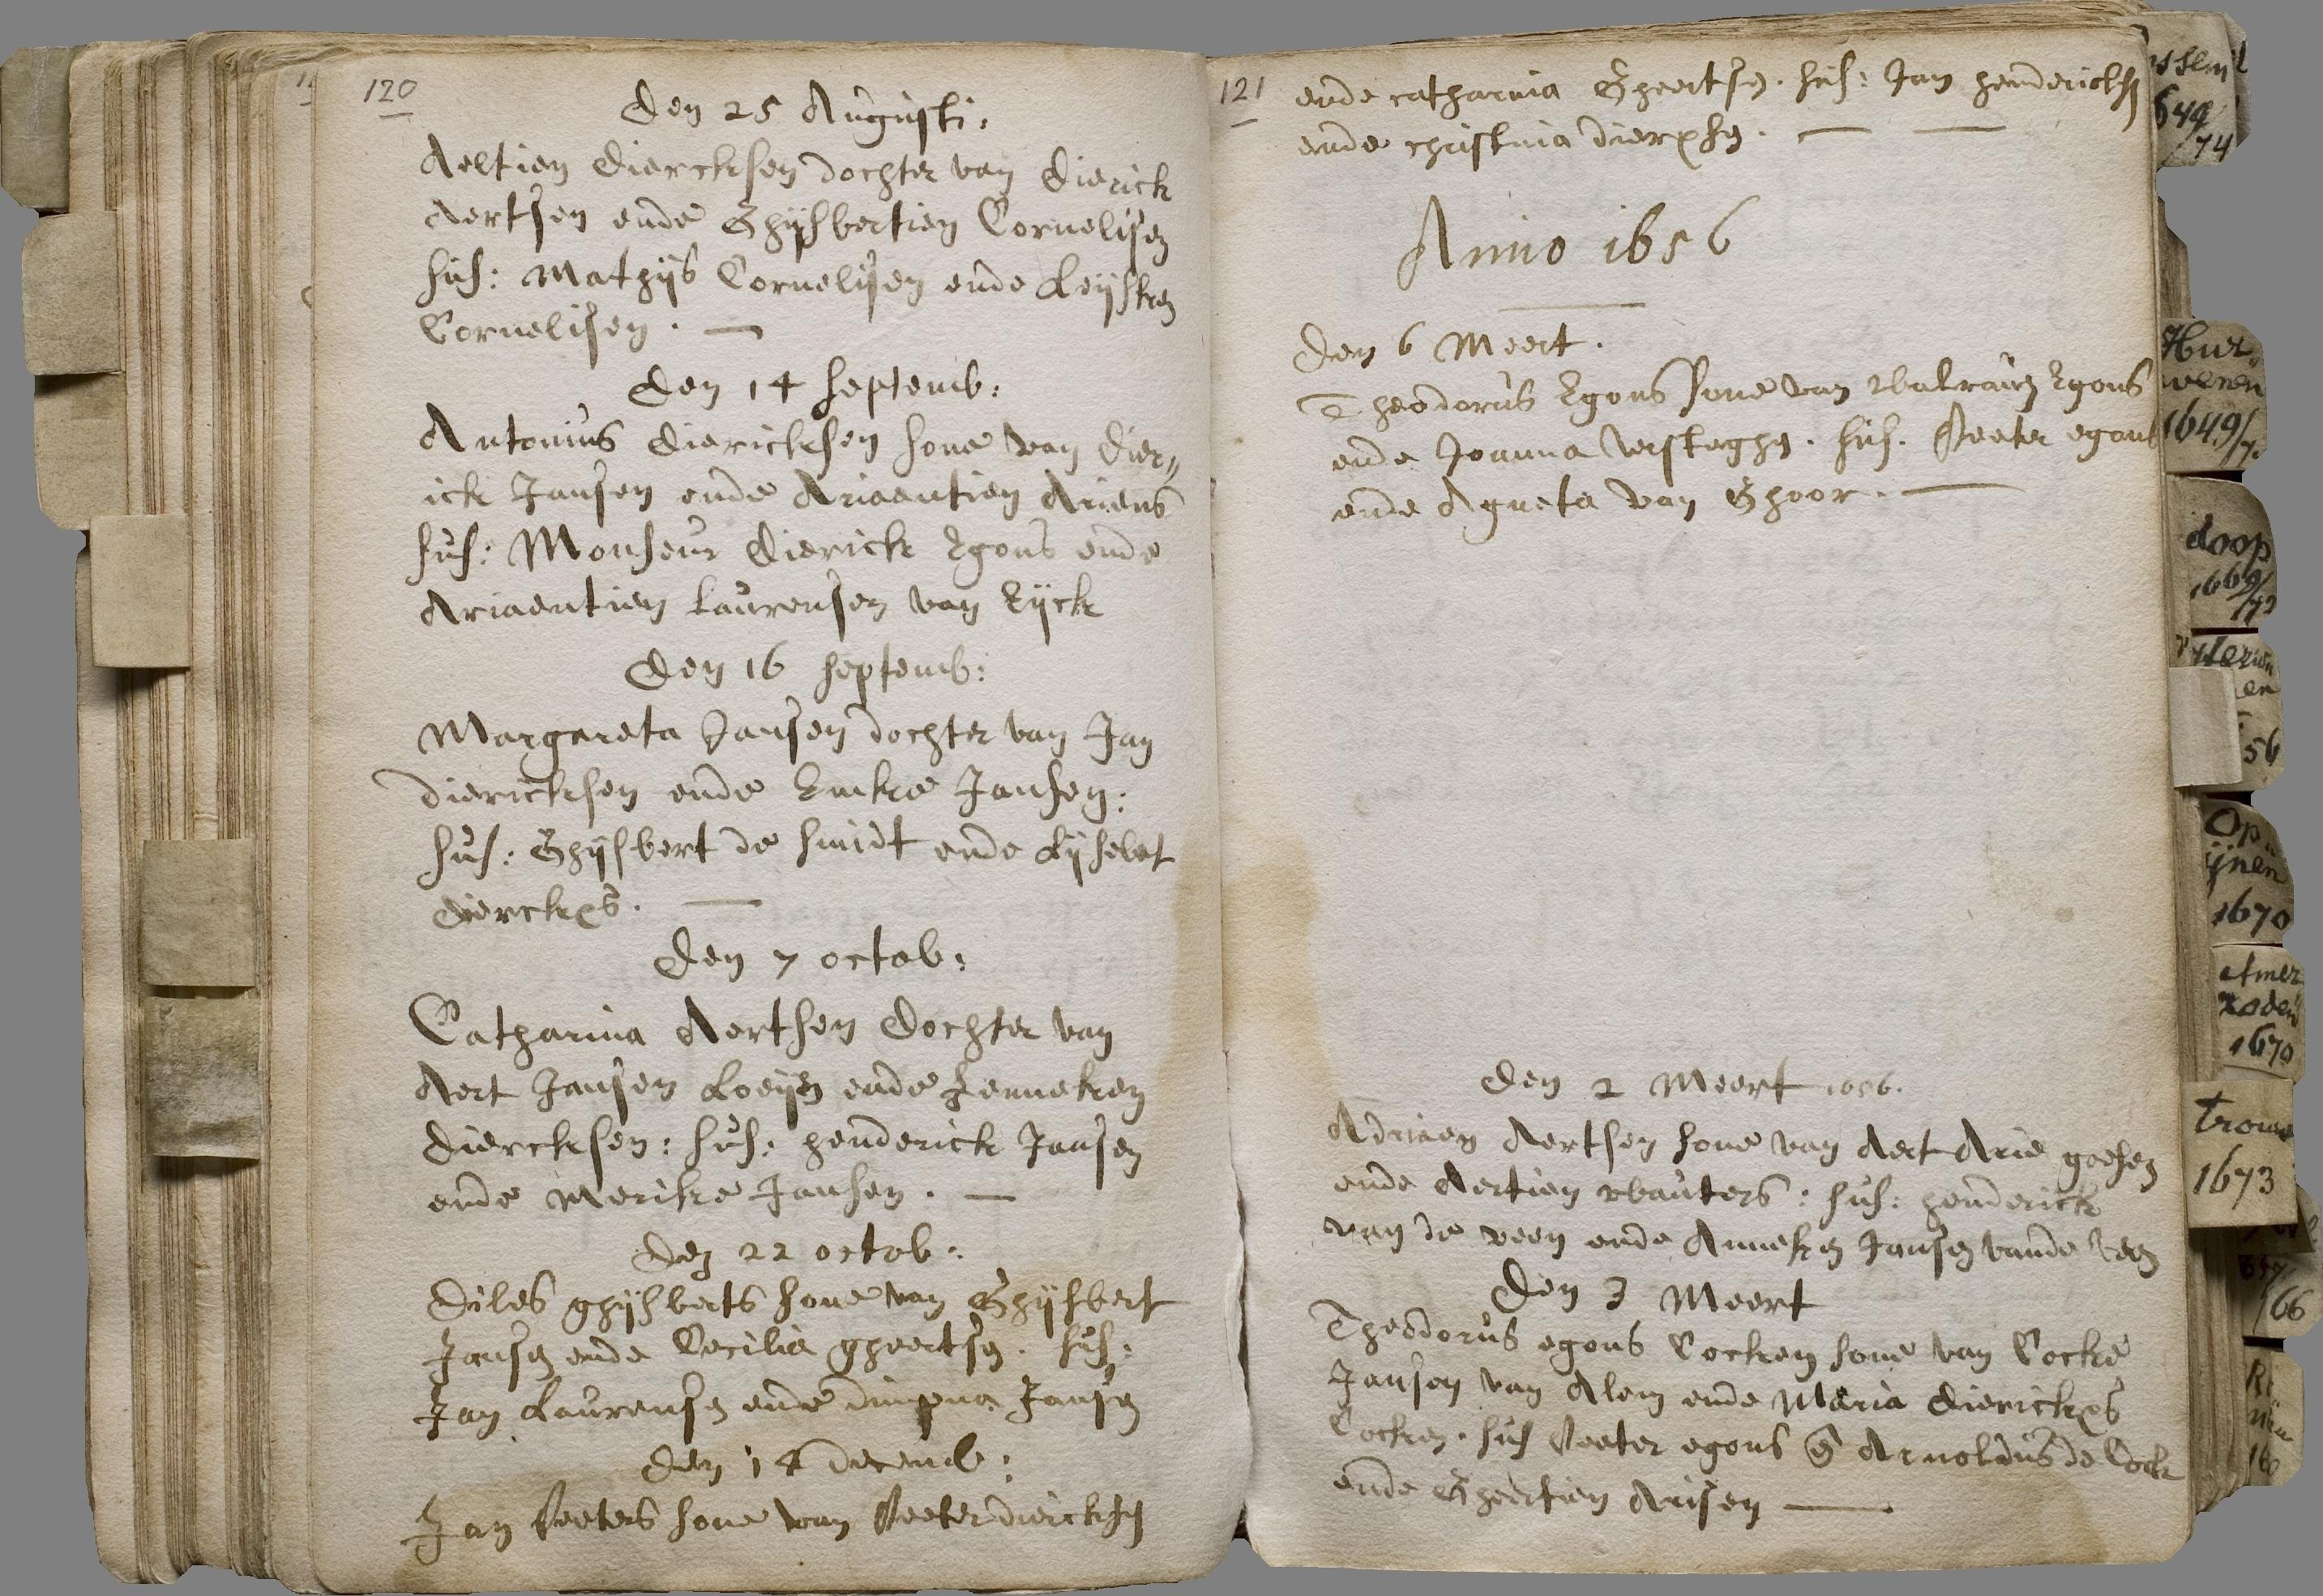 120
Den 25 Augusti:
Aeltien Diercksen dochter van Dierick
Aertsen ende Ghijsbertien Cornelisen
sus: Mathijs Cornelisen ende Leijsken
Cornelisen.
Den 14 Septemb:
Antonius Diericksen sone van Dier„
ick Jansen ende Ariaentien Ariens
sus: Monseur Dierick Egons ende
Ariaentien Laurensen van Eijck
Den 16 Septemb:
Margareta Jansen dochter van Jan
Diericksen ende Emke Jansen:
sus: Ghijsbert de Smidt ende Lijsebet
Dierckxs.
Den 7 octob:
Catharina Aertsen Dochter van
Aert Jansen Loeijen ende Jenneken
Diercksen: sus: Henderick Jansen
ende Merike Jansen.
Den 22 octob:
Diles ghijsberts sone van Ghijsbert
Jansen ende Cecilia gheertsen. sus:
Jan Laurensen ende dimpna Jansen
Den 14 decemb:
Jan Peeters sone van Peeter diericksen
121
ende catharina Gheertsen. sus: Jan Hendericksen
ende christina dierxsen.
Anno 1656
Den 6 Meert.
Theodorus Egons sone van Walraven Egons
ende Joanna versteghen. sus. Peeter egons
ende Agneta van Ghoor.
Den 2 Meert 1656.
Adriaen Aertsen sone van Aert Arie goesen
ende Aertien Wauters: sus: Henderick
van de veen ende Anneken Jansen vande Veen
Den 3 Meert
Theodorus egons Cocken sone van Cocke
Jansen van Alem ende Maria Dierickxs
Cocken. sus Peeter egons en Arnoldus de Cock
ende Gheertien Arisen
1649/74
Hur„
wenen
1649/7
doop
1669/72
56
Op„
ijnen
1670
1670
trouw
1673
66